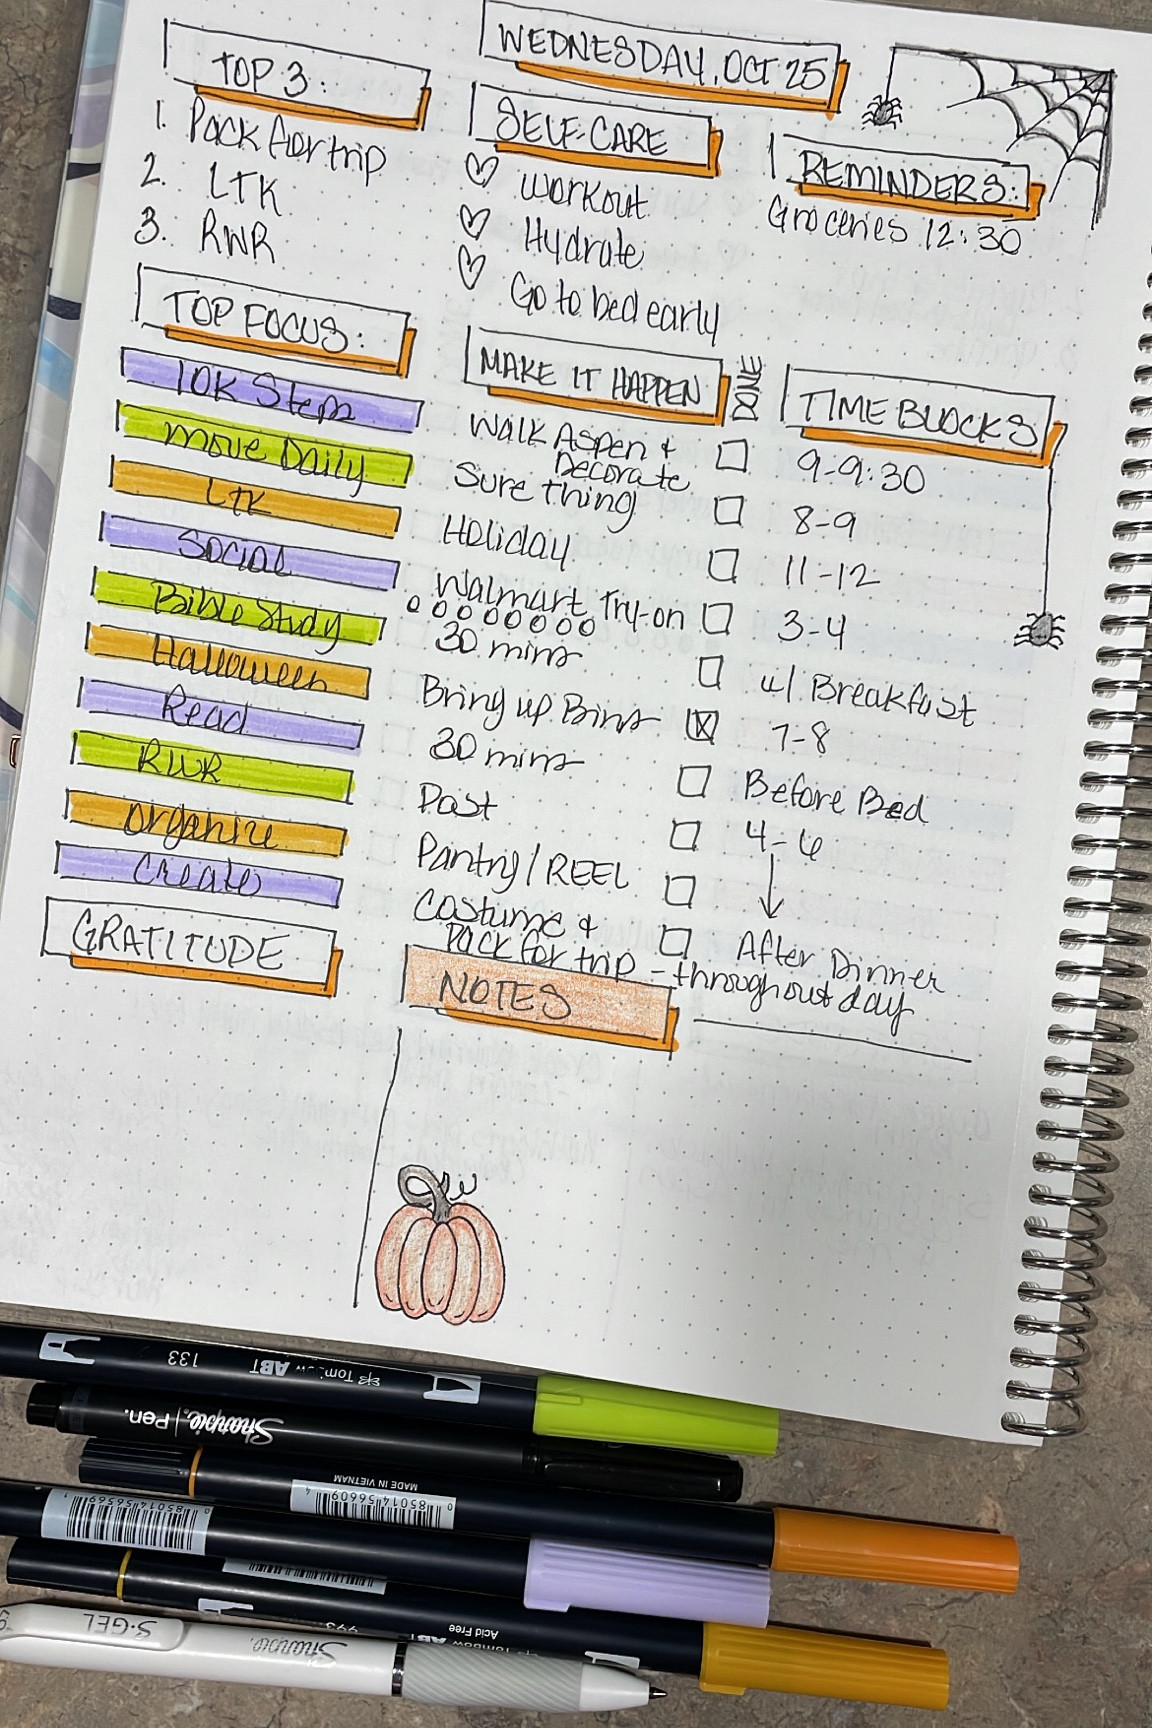 WEDNESDAY, OCT 25
TOP 3:
1. Pack for trip
2. LTK
3. RWR
SELF-CARE
Workout
Hydrate
Go to bed early
REMINDERS:
Groceries 12:30
TOP FOCUS:
10K Steps
Move Daily
LTK
Social
Bible Study
Halloween
Read
RWR
Organize
Create
GRATITUDE
MAKE IT HAPPEN
DONE
TIME BLOCKS
Walk Aspen &
Decorate
9-9:30
Sure thing
8-9
Holiday
11-12
Walmart Try-on
3-4
30 mins
w/ Breakfast
Bring up Bins
7-8
30 mins
Before Bed
Post
4-6
Pantry/REEL
Costume &
After Dinner
Pack for trip - throughout day
NOTES
133
Tombow ABT
Sharpie. Pen.
MADE IN VIETNAM
0 85014 56609 4
0 85014 56569 1
993
Tombow ABT
Acid Free
S·GEL
Sharpie.